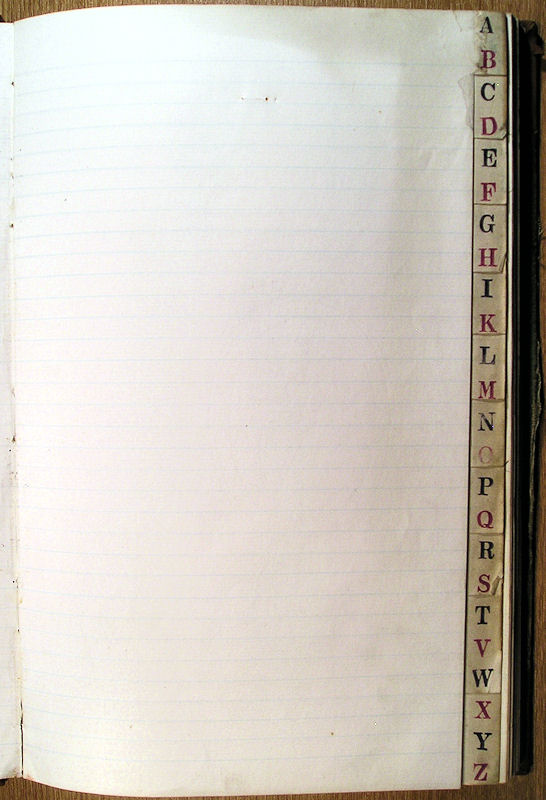 A
B
C
D
E
F
G
H
I
K
L
M
N
O
P
Q
R
S
T
V
W
X
Y
Z